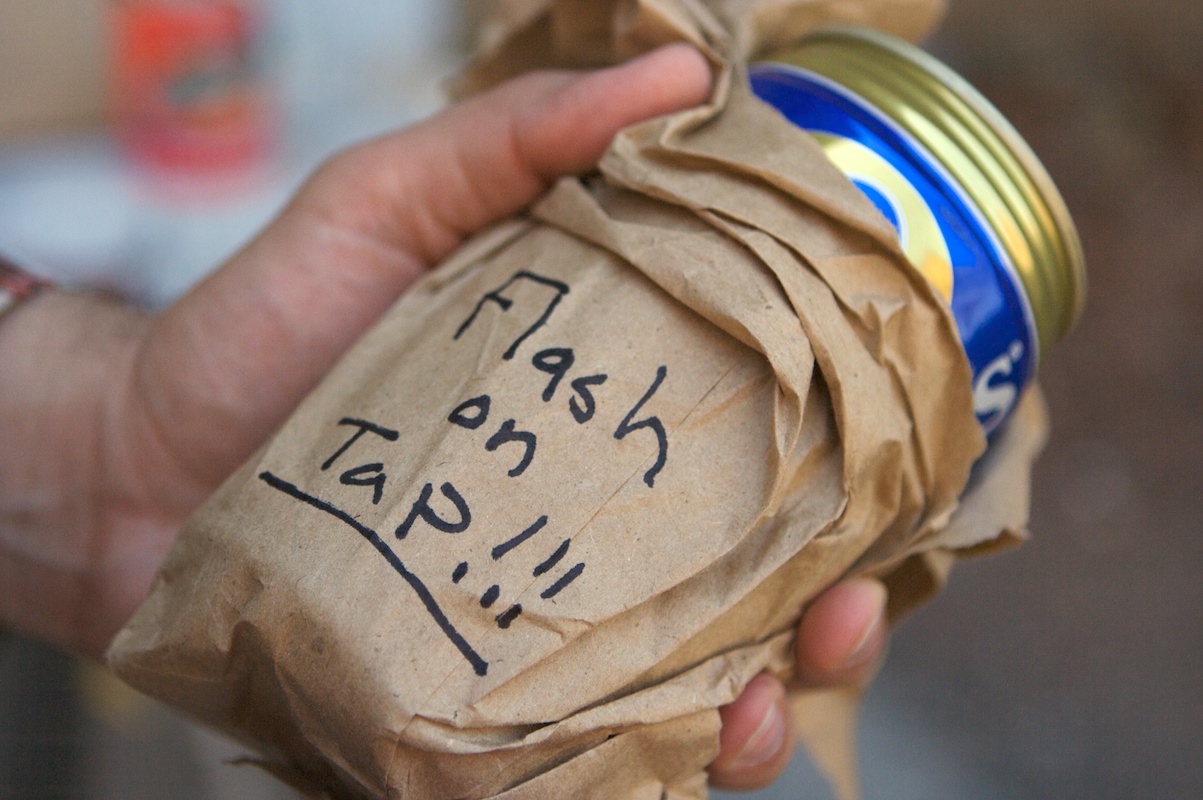 Flash
on
Tap!!!
s